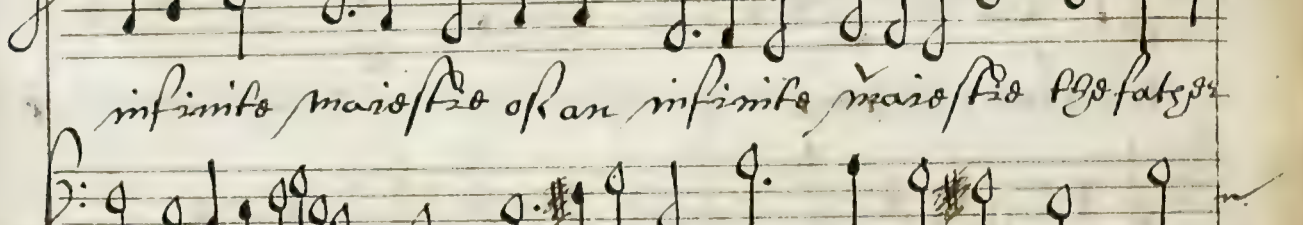 infinite maiestie of an infinite maiestie the father